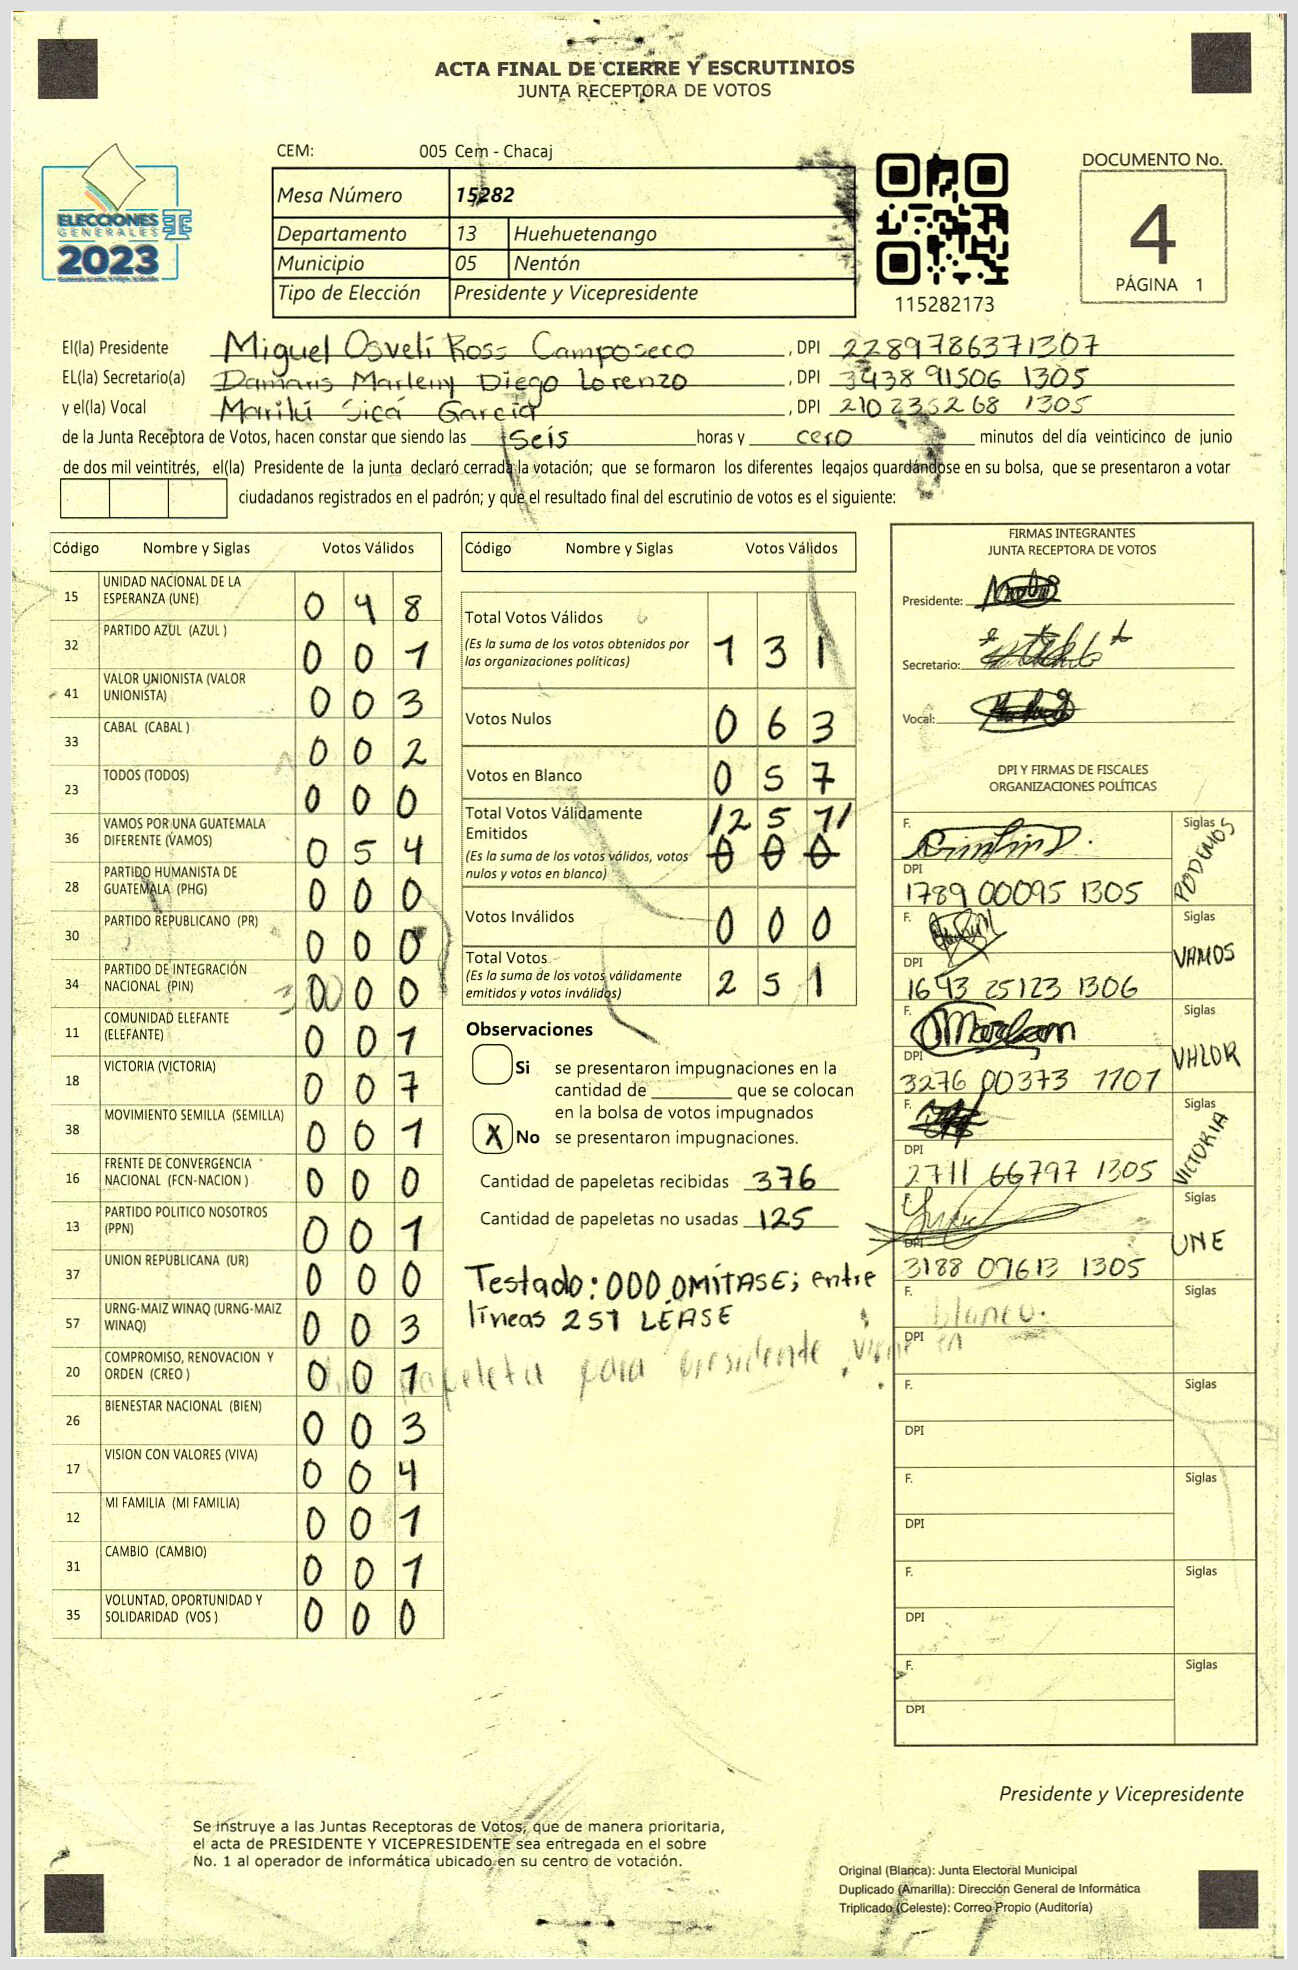 ACTA FINAL DE CIERRE Y ESCRUTINIOS
JUNTA RECEPTORA DE VOTOS
CEM: 005 Cem - Chacaj
ELECCIONES
GENERALES
2023
TSE
Mesa Número 15282
Departamento 13 Huehuetenango
Municipio 05 Nentón
Tipo de Elección Presidente y Vicepresidente
115282173
DOCUMENTO No.
4
PÁGINA 1
El(la) Presidente Miguel Osveli Ross Camposeco, DPI 2289786371307
EL(la) Secretario(a) Damaris Marleny Diego Lorenzo, DPI 343891506 1305
y el(la) Vocal Marilú Sicá García, DPI 210235268 1305
de la Junta Receptora de Votos, hacen constar que siendo las seis horas y cero minutos del día veinticinco de junio
de dos mil veintitrés, el(la) Presidente de la junta declaró cerrada la votación; que se formaron los diferentes legajos guardándose en su bolsa, que se presentaron a votar
ciudadanos registrados en el padrón; y que el resultado final del escrutinio de votos es el siguiente:
Código Nombre y Siglas Votos Válidos
15 UNIDAD NACIONAL DE LA ESPERANZA (UNE) 0 4 8
32 PARTIDO AZUL (AZUL ) 0 0 1
41 VALOR UNIONISTA (VALOR UNIONISTA) 0 0 3
33 CABAL (CABAL ) 0 0 2
23 TODOS (TODOS) 0 0 0
36 VAMOS POR UNA GUATEMALA DIFERENTE (VAMOS) 0 5 4
28 PARTIDO HUMANISTA DE GUATEMALA (PHG) 0 0 0
30 PARTIDO REPUBLICANO (PR) 0 0 0
34 PARTIDO DE INTEGRACIÓN NACIONAL (PIN) 0 0 0
11 COMUNIDAD ELEFANTE (ELEFANTE) 0 0 1
18 VICTORIA (VICTORIA) 0 0 7
38 MOVIMIENTO SEMILLA (SEMILLA) 0 0 1
16 FRENTE DE CONVERGENCIA NACIONAL (FCN-NACION ) 0 0 0
13 PARTIDO POLITICO NOSOTROS (PPN) 0 0 1
37 UNION REPUBLICANA (UR) 0 0 0
57 URNG-MAIZ WINAQ (URNG-MAIZ WINAQ) 0 0 3
20 COMPROMISO, RENOVACION Y ORDEN (CREO ) 0 0 1
26 BIENESTAR NACIONAL (BIEN) 0 0 3
17 VISION CON VALORES (VIVA) 0 0 4
12 MI FAMILIA (MI FAMILIA) 0 0 1
31 CAMBIO (CAMBIO) 0 0 1
35 VOLUNTAD, OPORTUNIDAD Y SOLIDARIDAD (VOS ) 0 0 0
Código Nombre y Siglas Votos Válidos
Total Votos Válidos 1 3 1
(Es la suma de los votos obtenidos por
las organizaciones políticas)
Votos Nulos 0 6 3
Votos en Blanco 0 5 7
Total Votos Válidamente /2 5 1/
Emitidos
(Es la suma de los votos válidos, votos 0 0 0
nulos y votos en blanco)
Votos Inválidos 0 0 0
Total Votos
(Es la suma de los votos válidamente 2 5 1
emitidos y votos inválidos)
Observaciones
Si se presentaron impugnaciones en la
cantidad de ________ que se colocan
en la bolsa de votos impugnados
X No se presentaron impugnaciones.
Cantidad de papeletas recibidas 376
Cantidad de papeletas no usadas 125
Testado: 000 OMÍTASE; entre
líneas 251 LÉASE
papeleta para presidente viene en
blanco.
FIRMAS INTEGRANTES
JUNTA RECEPTORA DE VOTOS
Presidente:
Secretario:
Vocal:
DPI Y FIRMAS DE FISCALES
ORGANIZACIONES POLÍTICAS
F. Siglas PODEMOS
DPI 1789 00095 1305
F. Siglas VAMOS
DPI 1643 25123 1306
F. Siglas VALOR
DPI 3276 00373 1101
F. Siglas VICTORIA
DPI 2711 66797 1305
F. Siglas UNE
DPI 3188 09613 1305
F. Siglas
DPI
F. Siglas
DPI
F. Siglas
DPI
F. Siglas
DPI
F. Siglas
DPI
Presidente y Vicepresidente
Se instruye a las Juntas Receptoras de Votos, que de manera prioritaria,
el acta de PRESIDENTE Y VICEPRESIDENTE sea entregada en el sobre
No. 1 al operador de informática ubicado en su centro de votación.
Original (Blanca): Junta Electoral Municipal
Duplicado (Amarilla): Dirección General de Informática
Triplicado (Celeste): Correo Propio (Auditoría)